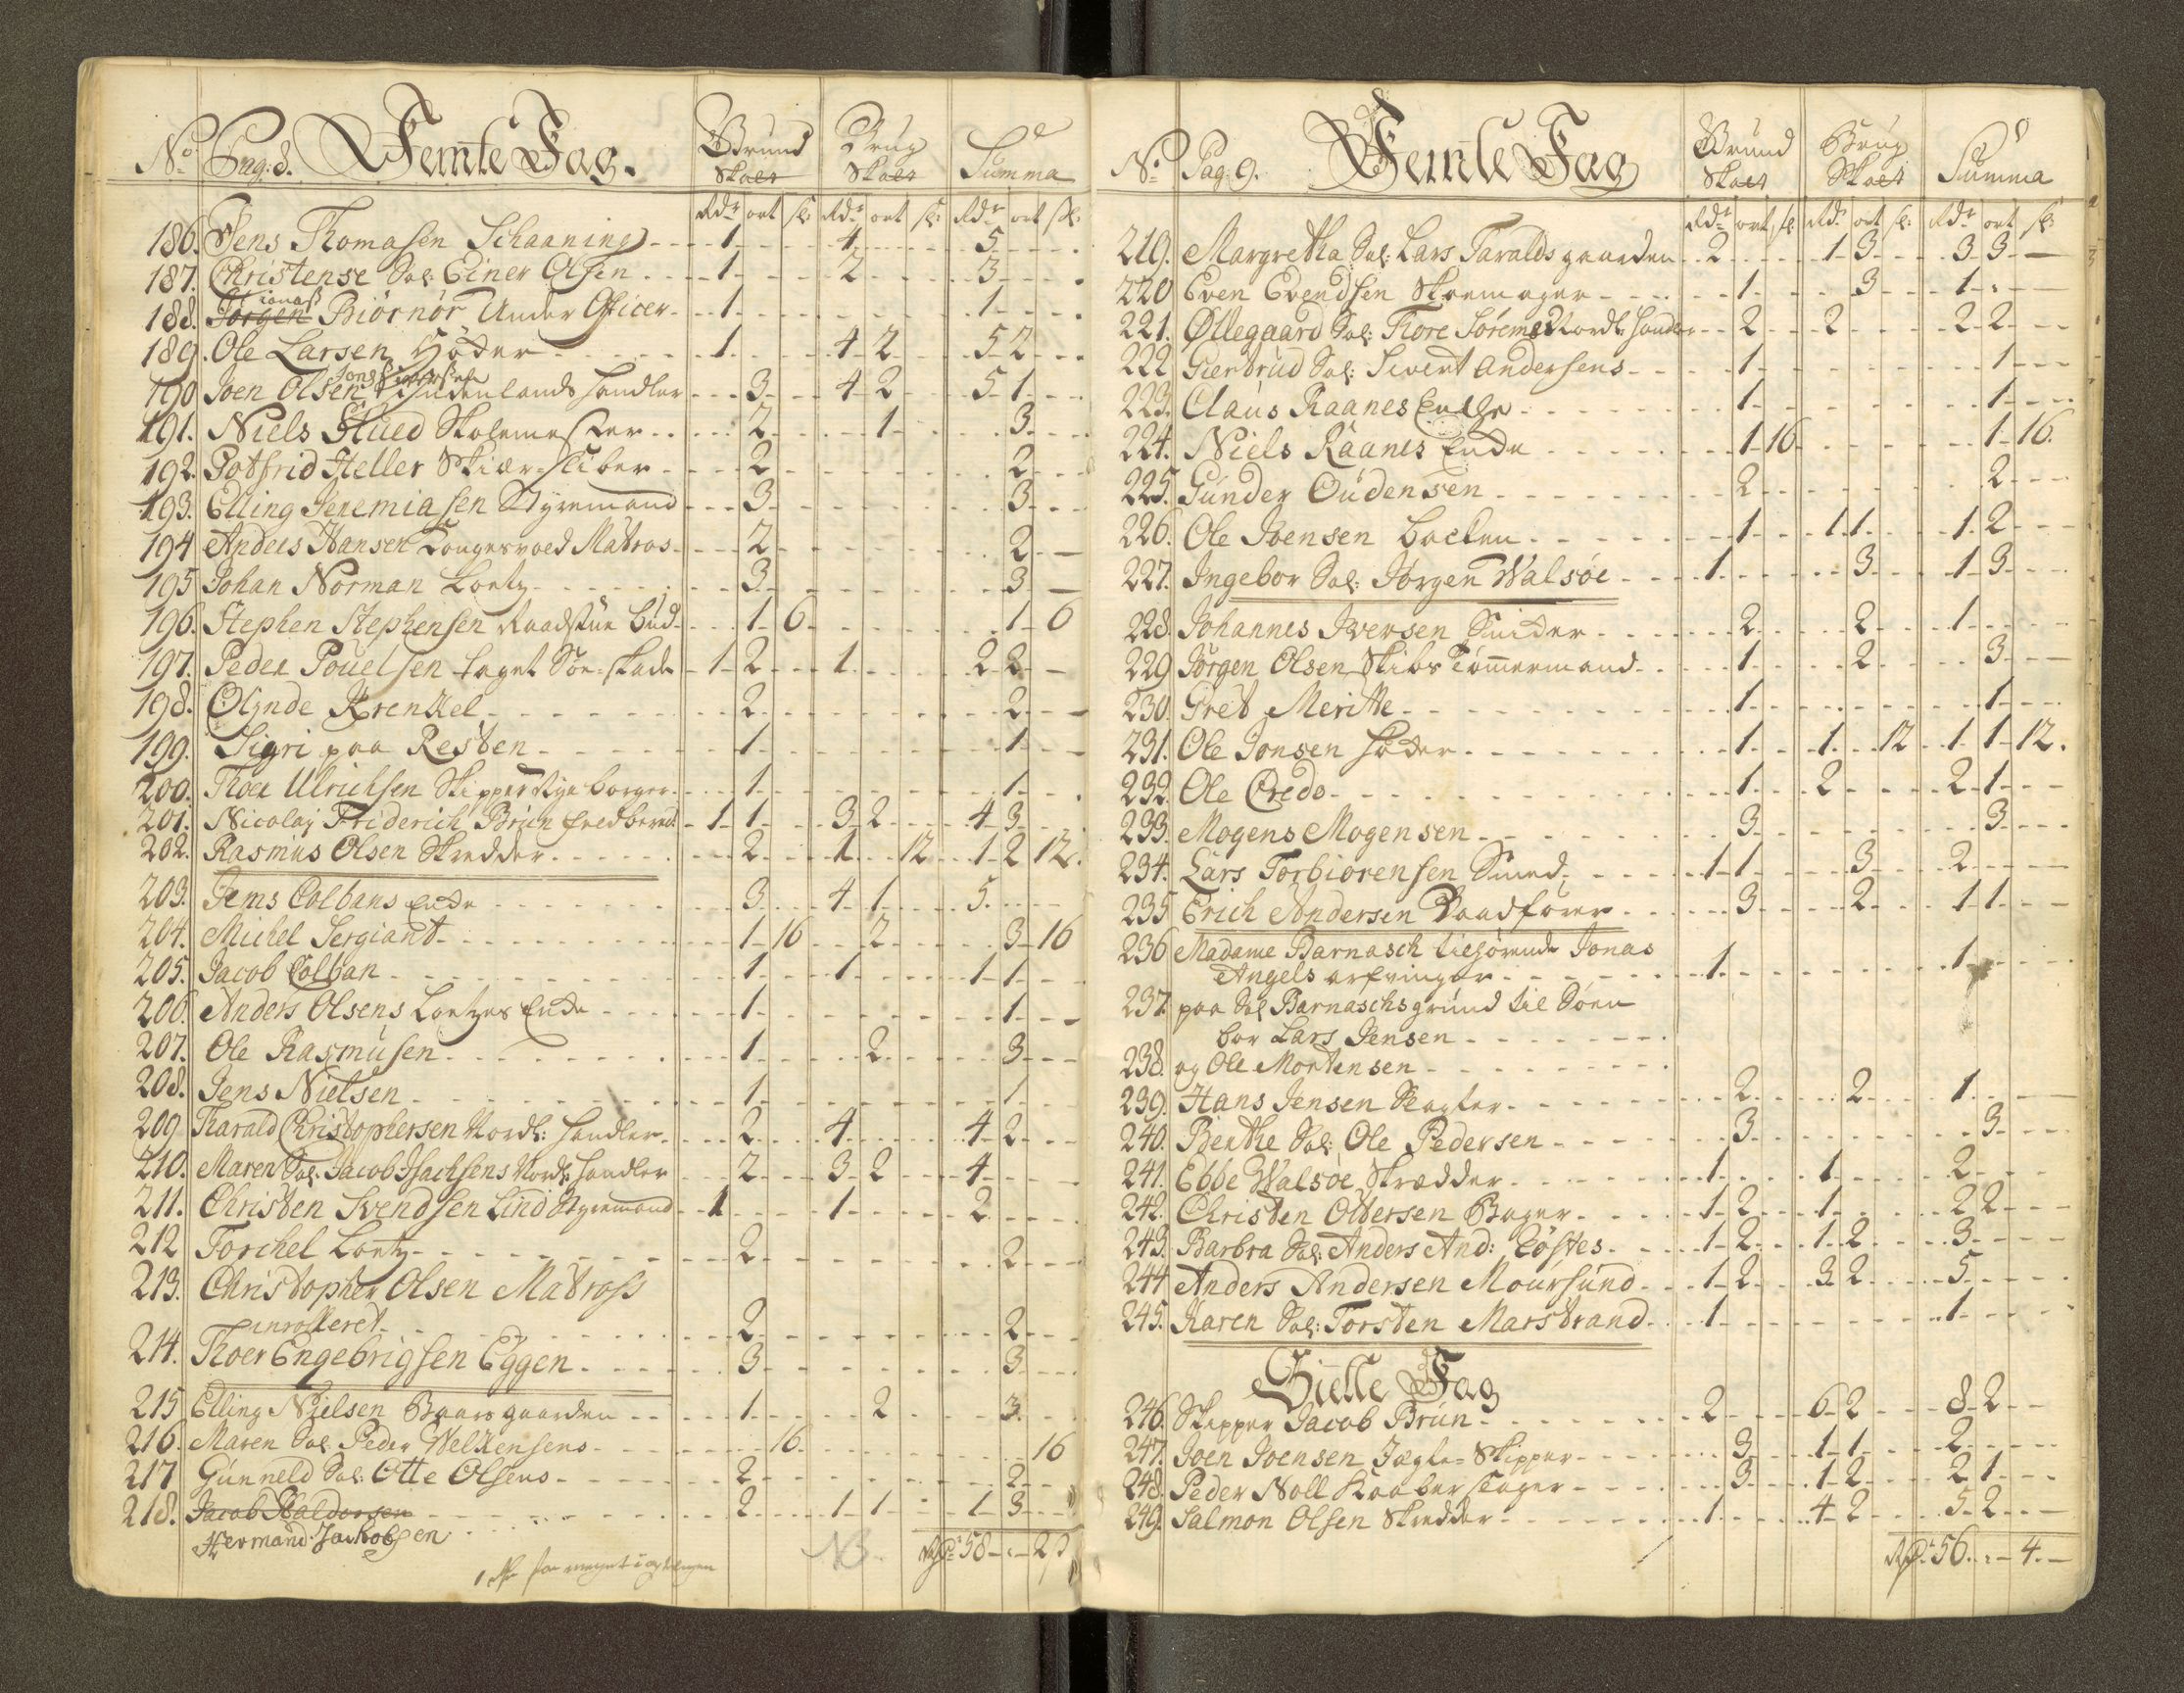 No Pag: 8. Femte Fag. Grund Skatt Brug Skatt Summa
Rdr ort sk: Rdr ort sk: Rdr ort sk:
186. Jens Thomasen Schaaning 1 4 5
187. Christense Sal: Einer Olsen 1 2 3
Jonas
188. Jörgen Biörnör Under Officer 1 1
189. Ole Larsen Höder 1 4 2 5 2
190 Joen Olsen Indenlands handler 3 4 2 5 1
191. Niels Stued Skolemester 2 1 3
192. Potfrid Heller Skiær-sliber 2 2
193. Elling Jeremiasen Styremand 3 3
194 Anders Hansen Tongesvold Matros 2 2
195 Johan Norman Lootz 3 3
196. Stephen Stephensen Raadstue bud 1 6 1 6
197. Peder Pouelsen taget Söe-skade 1 2 1 2 2
198. Olynde Krenkel 2 2
199. Sigri paa Resten 1 1
200. Thoer Ulrichsen Skipper Nye borger 1 1
201. Nicolaj Friderich Brün 1 1 3 2 4 3
202. Rasmus Olsen Skredder 2 1 12 1 2 12
203. Jems Colbans Enke 3 4 1 5
204. Michel Sergiant 1 16 2 3 16
205. Jacob Colban 1 1 1 1
206. Anders Olsens Lootzes Enke 1 1
207. Ole Rasmusen 1 2 3
208. Jens Nielsen 1 1
209 Harald Christophersen Nordl: handler 2 4 4 2
210. Maren Sal: Jacob Isachsens Nordl: handler 2 3 2 4
211. Christen Svendsen Lind Styremand 1 1 2
212 Torchel Lootz 2 2
213. Christopher Olsen Matross
inrolleret 2 2
214. Thoer Engebrigsen Eggen 3 3
215 Elling Nielsen Baarsgaarden 1 2 3
216. Maren Sal: Peder Welkensens 16 16
217 Gunneld Sal: Otte Olsens 2 2
218. Jacob Haldorsen 2 1 1 1 3
Hermand Jachobsen
NB. Rdr 58 - 2
No Pag: 9. Femte Fag Grund Skatt Brug Skatt Summa
Rdr ort sk: Rdr ort sk: Rdr ort sk:
219. Margretha Sal: Lars Taraldsgaarden 2 1 3 3 3
220 Even Evendsen Skoemager 1 3 1
221. Øllegaard Sal: Tore Søremes Nordl: handler 2 2 2 2
222 Giertrud Sal: Sivert Andersens 1 1
223. Claus Raanes Enke 1 1
224. Niels Raanes Enke 1 16 1 16
225. Gunder Oudensen 2 2
226. Ole Joensen backen 1 1 1 1 2
227. Ingebor Sal: Jørgen Walsöe 1 3 1 3
228. Johannes Iversen Snider 2 2 1
229 Jörgen Olsen Skibs Tømmermand 1 2 3
230. Gret Meritte 1 1
231. Ole Jonsen höder 1 1 12 1 1 12
232. Ole Credo 1 2 2 1
233. Mogens Mogensen 3 3
234. Lars Torbiörensen Smed 1 1 3 2
235 Erich Andersen Vaadførere 3 2 1 1
236 Madame Barnasch tilhørende Jonas
Angels arfvinger 1 1
237. paa Sal Barnaschs grund til Söen
bor Lars Jensen
238. og Ole Mortensen
239. Hans Jensen Slagter 2 2 1
240. Benthe Sal: Ole Pedersen 3 3
241. Ebbe Walsöe Skrædder 1 1 2
242. Christen Oltersen Bager 1 2 1 2 2
243. Barbra Sal: Anders And: Cöstes 1 2 1 2 3
244 Anders Andersen Moursund 1 2 3 2 5
245. Karen Sal: Torsten Marstrand 1 1
Siette Fag
246. Skipper Jacob Brün 2 6 2 8 2
247. Joen Joensen Jægte-Skipper 3 1 1 2
248. Peder Noll Kaaberslager 3 1 2 2 1
249. Salmon Olsen Skredder 1 4 2 5 2
Rdr. 56. - 4. -